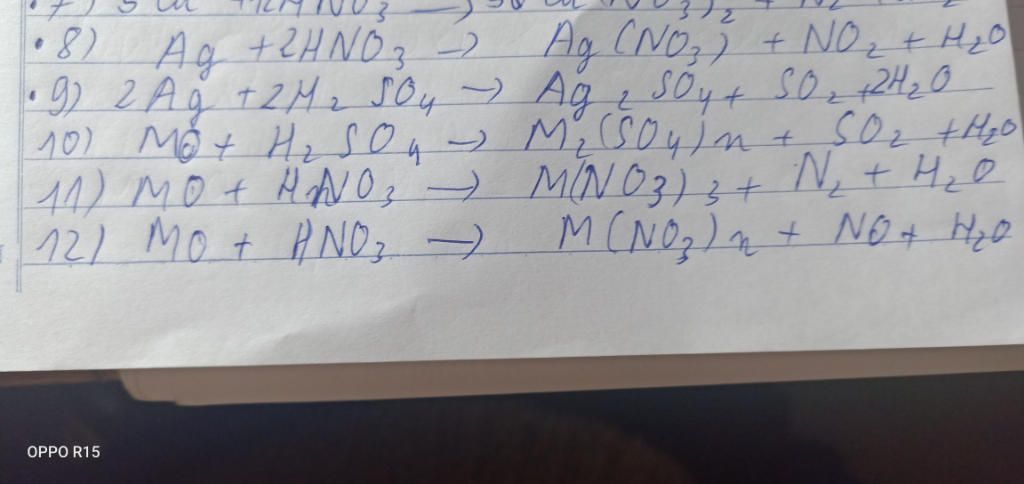 8) Ag + 2HNO3 → Ag(NO3) + NO2 + H2O
9) 2Ag + 2H2SO4 → Ag2SO4 + SO2 + 2H2O
10) MO + H2SO4 → M2(SO4)n + SO2 + H2O
11) MO + HNO3 → M(NO3)3 + N2 + H2O
12) MO + HNO3 → M(NO3)n + NO + H2O
OPPO R15